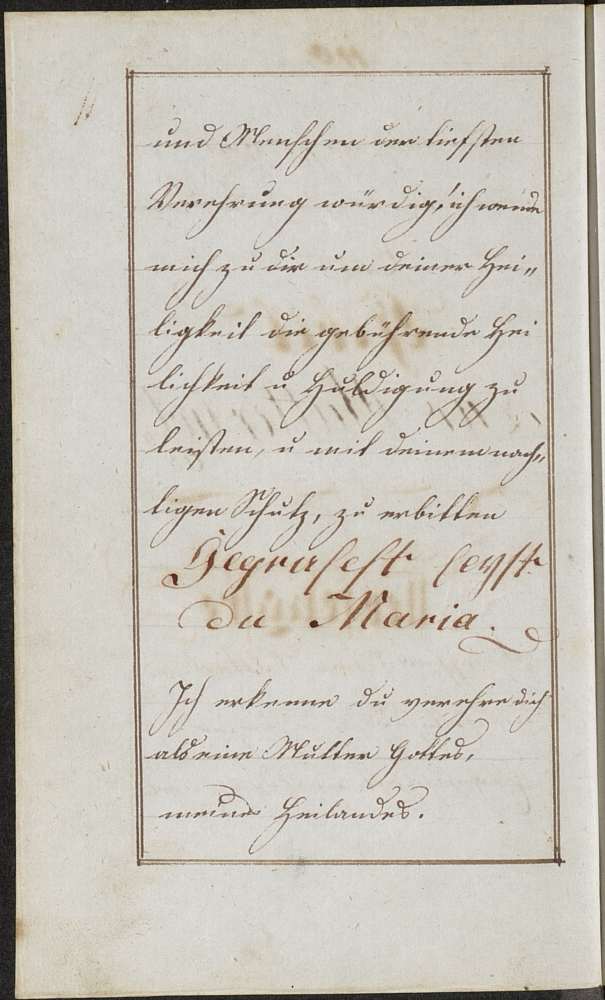 und Menschen der tiefsten
Verehrung würdig, ich wende
mich zu dir um deiner Hei„
ligkeit die gebührende Hei
lichkeit u Huldigung zu
leisten, u mit deinem näch„
ligen Schutz, zu erbitten
Gegrüsest seyst
du Maria.
Ich erkenne du verehre dich
als eine Mutter Gottes,
meines Heilandes.